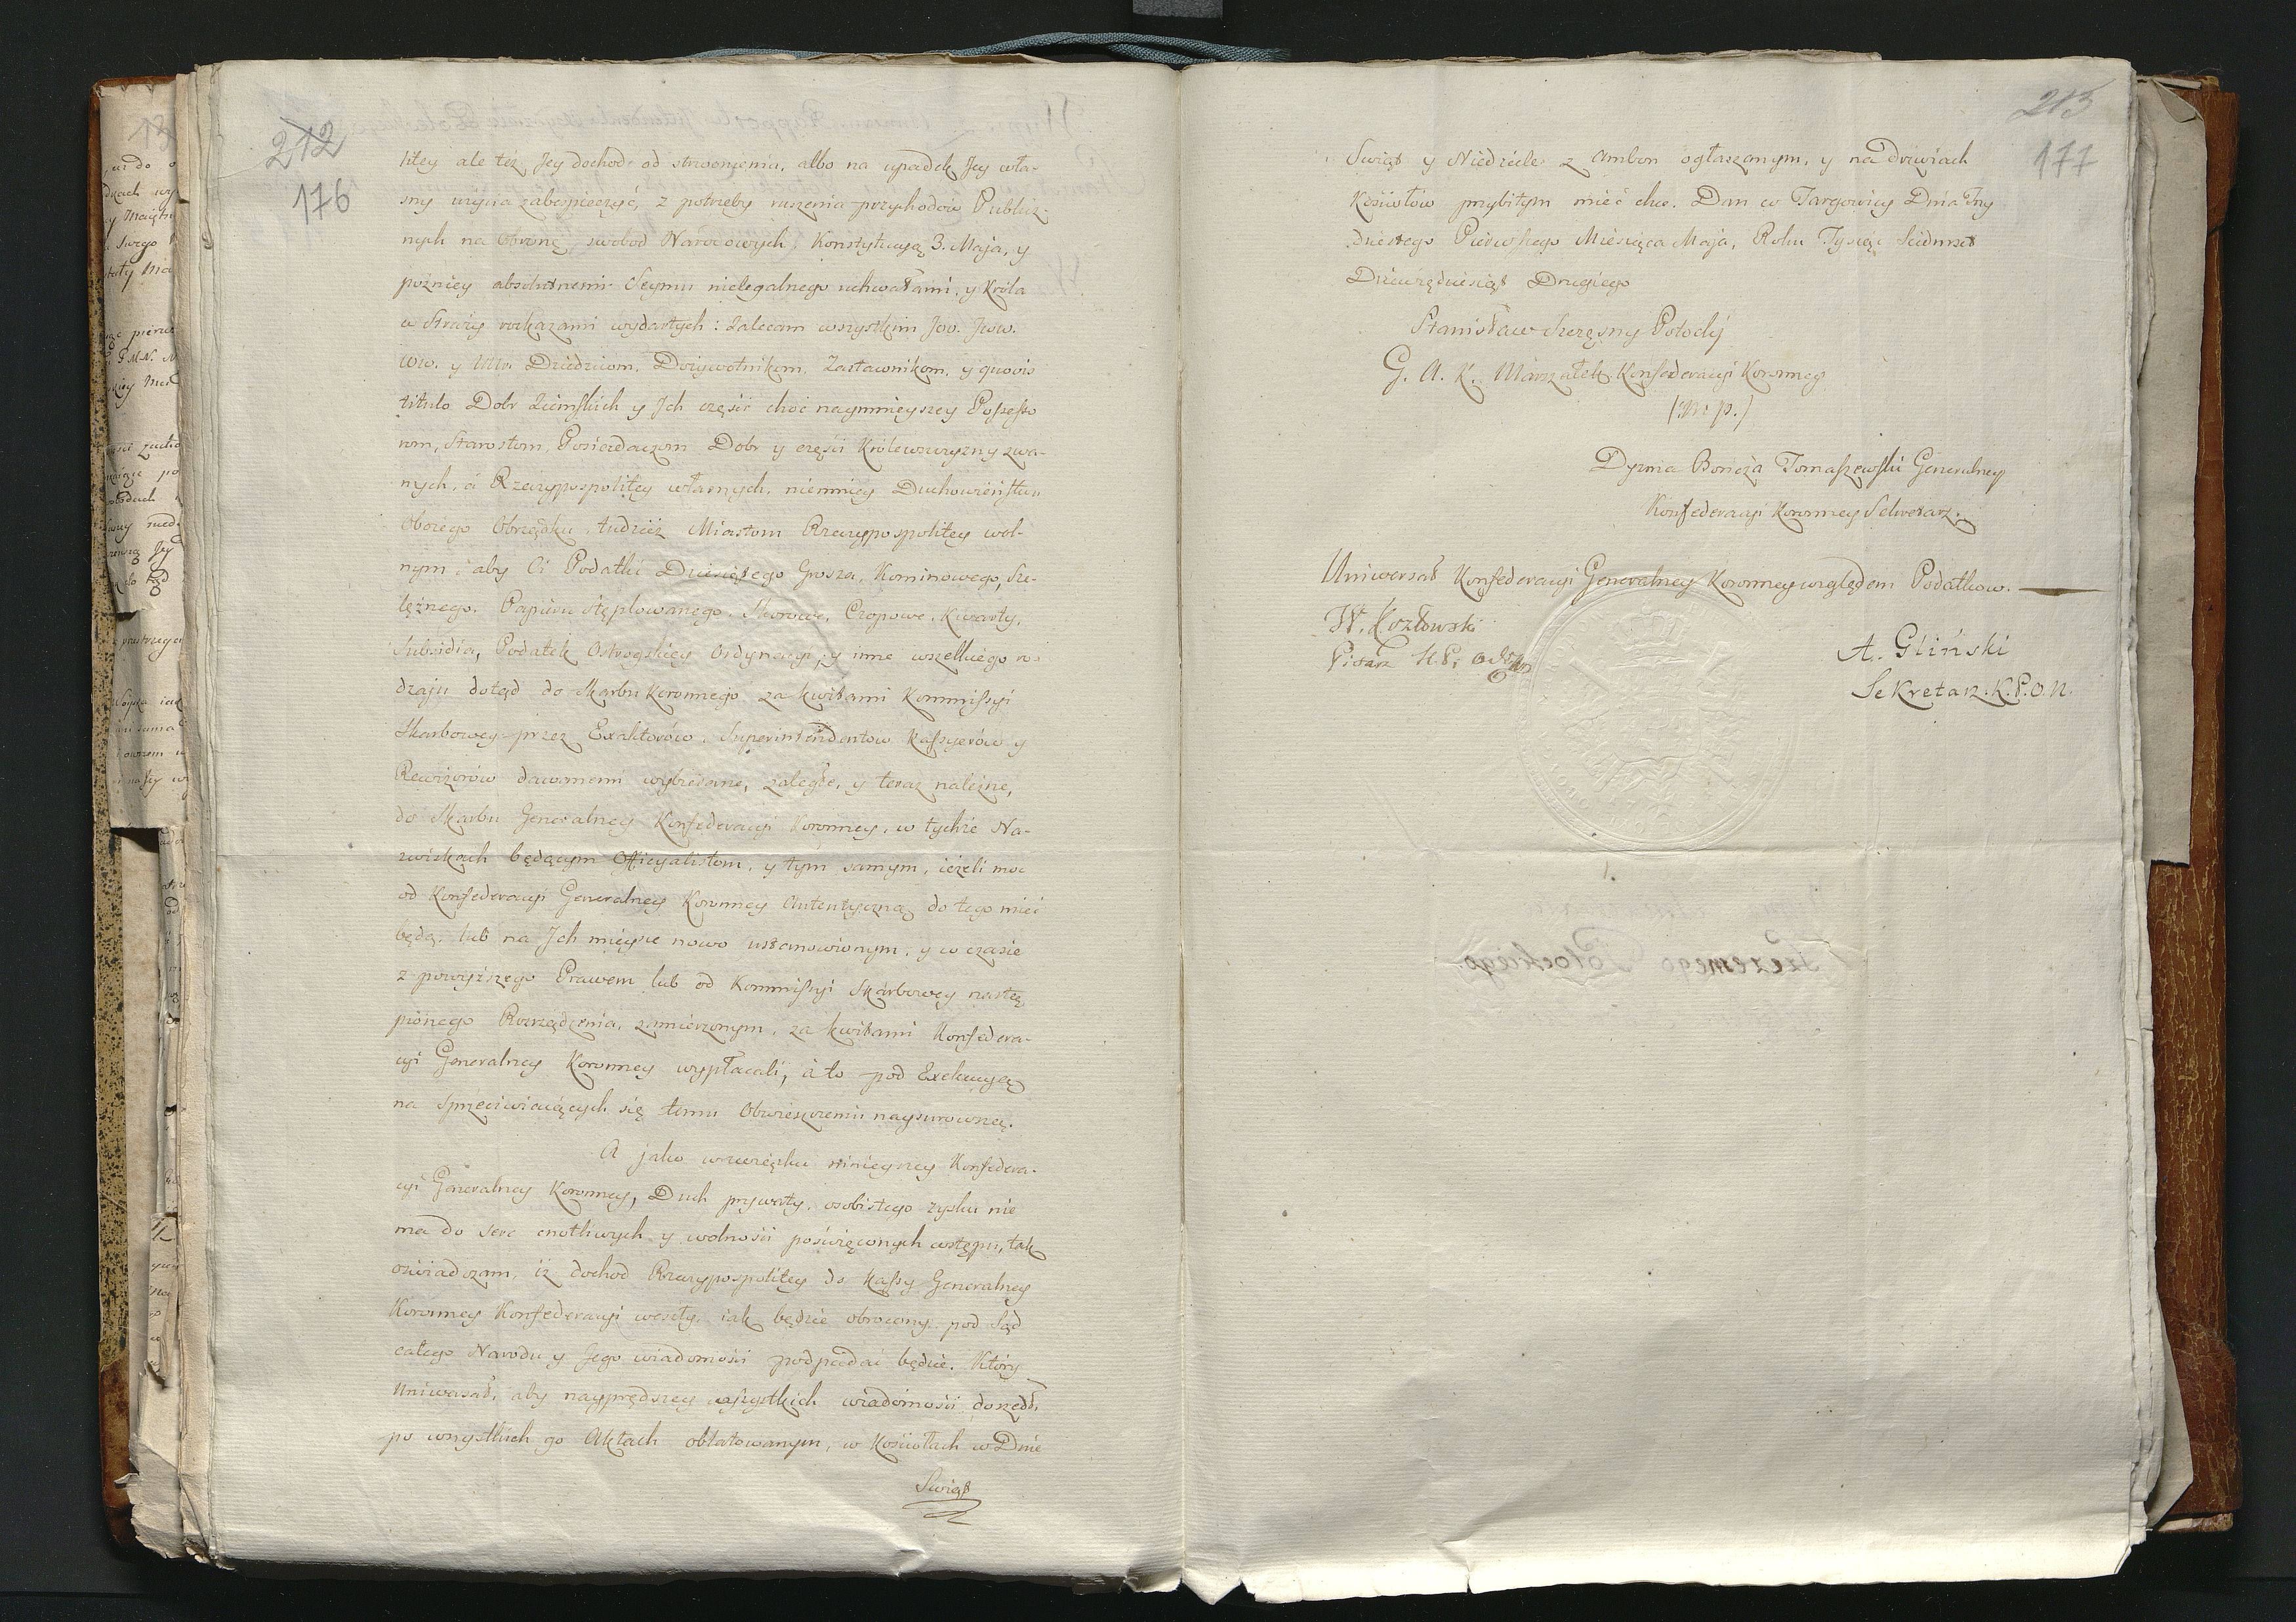 212
176
litey ale też Jey dochod od strwonienia, albo na upadek Jey wła-
sny użycia zabespieczyć, z potrzeby ruszenia przychodow Publicz-
nych na Obronę swobod Narodowych, Konstytucyą 3. Maja, y
poźniey absolutnemi Seymu nielegalnego uchwałami, y Króla
w Straży rozkazami wydartych: Zalecam wszystkim Jow. Jww.
Ww. y Dziedzicom, Dożywotnikom, Zastawnikom, y quovis
titulo Dobr Ziemskich y Jch części choć naymnieyszey Possesso
rom, Starostom, Posiadaczom Dobr y części Królewszczyzny zwa-
nych, á Rzeczypospolitey własnych, niemniey Duchowieństwu
Oboiego Obrządku, tudzież Miastom Rzeczypospolitey wol-
nym: aby Ci Podatki Dziesiątego Grosza, Kominowego, Sze-
lężnego, Papieru stęplowanego, Skorowe, Czopowe, Kwarty,
Subsidia, Podatek Ostrogskiey Ordynacyi, y inne wszelkiego ro-
dzaju dotąd do Skarbu Koronnego za kwitami Kommissyi
Skarbowey przez Exaktorów, Superintendentow Kassyerów y
Rewizorów dawnemi wybierane, zaległe, y teraz należne,
do Skarbu Generalney Konfederacyi Koronney, w tychże Na-
zwiskach będącym Officyalistom, y tym samym, ieżeli moc
od Konfederacyi Generalney Koronney Autentyczną do tego mieć
będą, lub na Jch mieysce nowo ustanowionym, y w czasie
z powyższego Prawem lub od Kommissyi Skarbowey nastą-
pionego Rozrządzenia, zamierzonym, za kwitami Konfedera-
cyi Generalney Koronney wypłacali, á to pod Exekucyą
na sprzeciwiaiących się temu Obwieszczeniu naysurowszą.
A jako w związku ninieyszey Konfedera-
cyi Generalney Koronney, Duch prywaty, osobistego zysku nie
ma do serc cnotliwych y wolności poświęconych wstępu, tak
oświadczam, iż dochod Rzeczypospolitey do Kassy Generalney
Koronney Konfederacyi weszły, iak będzie obrocony, pod Sąd
całego Narodu y Jego wiadomości podpadać będzie. Który
Uniwersał, aby nayprędzey wszystkich wiadomości doszedł,
po wszystkich go Aktach oblatowanym, w Kościołach w Dnie
Swiąt
213
177
Swiąt y Niedziele z Ambon ogłaszanym, y na drzwiach
Kościołów przybitym mieć chcę. Dan w Targowicy Dnia Trzy
dziestego Pierwszego Miesiąca Maja, Roku Tysiąc Siedmset
Dziewięćdziesiąt Drugiego
Stanisław Szczęsny Potocki
G. A. K. Marszałek Konfederacyi Koronney
(m. p.)
Dyzma Bończa Tomaszewski Generalney
Konfederacyi Koronney Sekretarz.
Uniwersał Konfederacyi Generalney Koronney względem Podatkow.
W. Kozłowski
Pisarz K. P.
A. Gliński
Sekretarz. K.P.O.N.